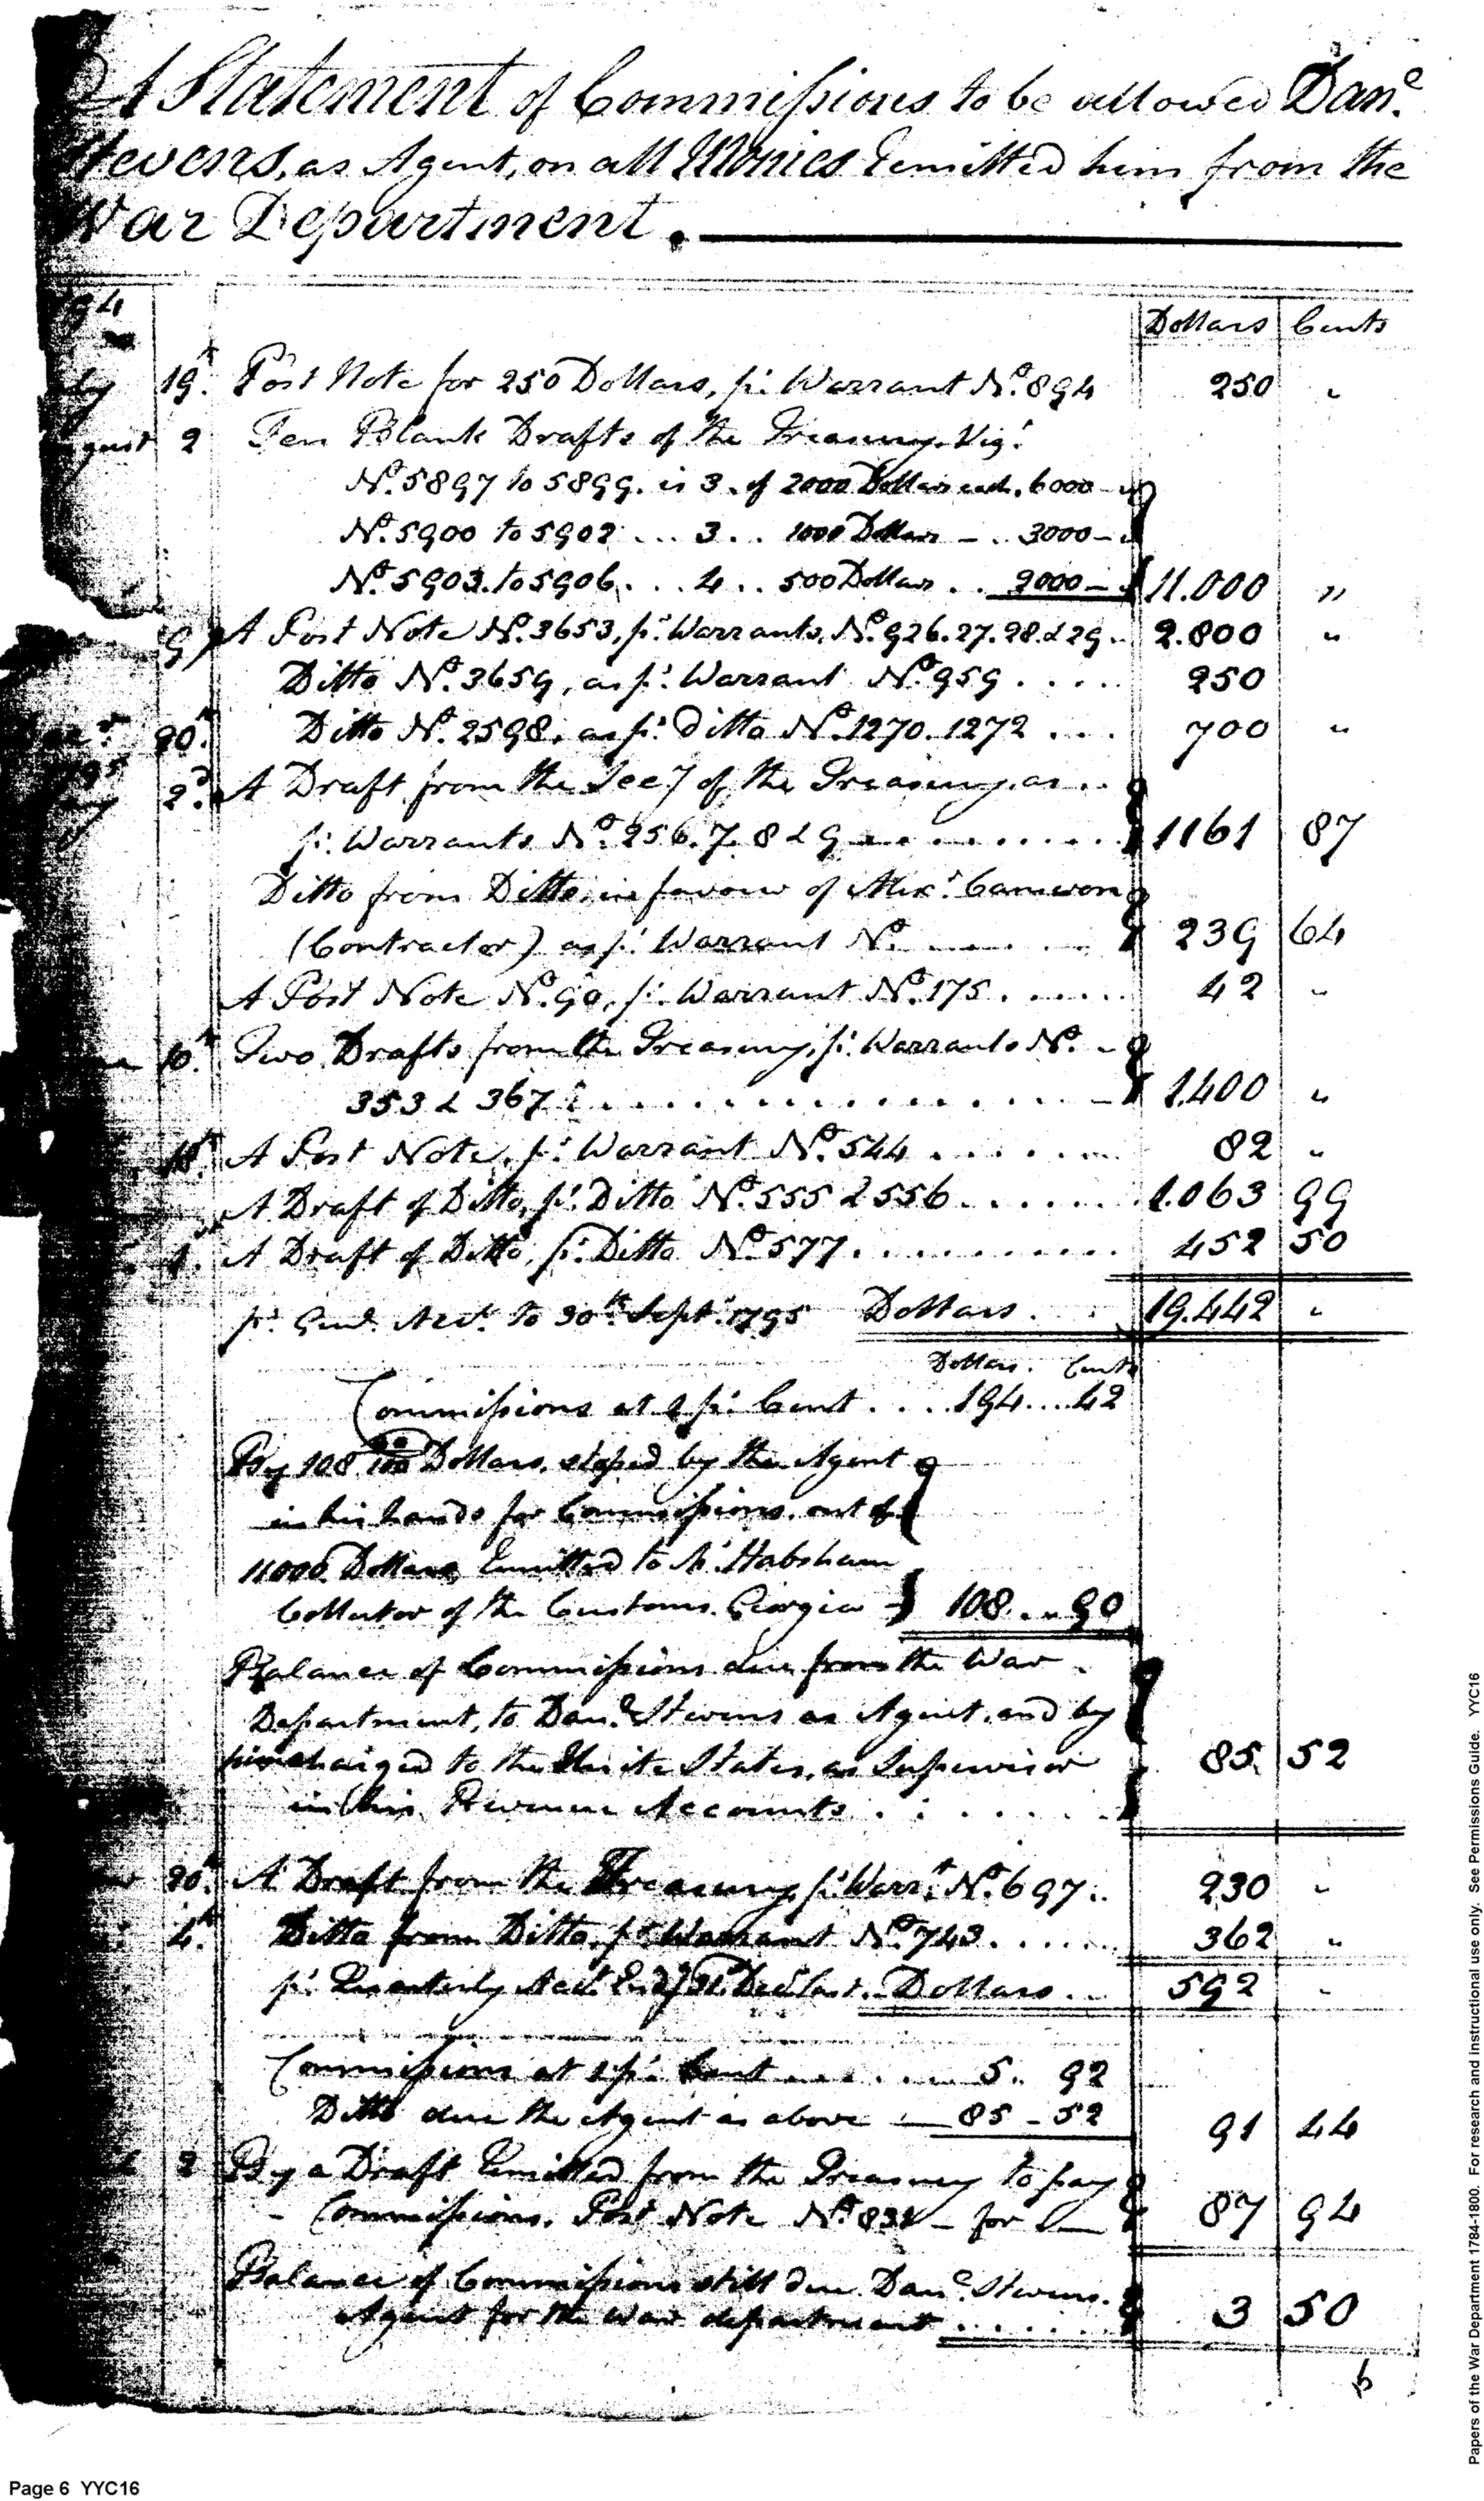 A Statement of Commissions to be allowed Danˡ.
Stevens, as Agent, on all Monies Remitted him from the
War Department.
Dollars Cents
19ᵗʰ. Post Note for 250 Dollars, pʳ. Warrant Nº. 894 250 "
2 Ten Blank Drafts of the Treasury Vizᵗ
Nº. 5897 to 5899. is 3. of 2000 Dollars each. 6000 - "
Nº. 5900 to 5902 ... 3 .. 1000 Dollars - .. 3000 - "
Nº. 5903. to 5906 ... 4 .. 500 Dollars .. 2000 - 11.000 "
9 A Post Note Nº. 3653, pʳ. Warrants, Nº. 926. 27. 28. & 29 .. 2.800 "
Ditto Nº. 3659, as pʳ. Warrant Nº. 959 .... 250
20ᵗʰ. Ditto Nº. 2598, as pʳ. Ditto Nº. 1270. 1272 ... 700 "
2ᵈ. A Draft from the Secʸ of the Treasury, as ..
pʳ. Warrants Nº. 256. 7. 8 & 9 .......... 1161 87
Ditto from Ditto, in favour of Alexʳ. Cameron
(Contractor) as pʳ. Warrant Nº. ........ 239 64
A Post Note Nº. 90, pʳ. Warrant Nº. 175 ...... 42 "
10ᵗʰ Two Drafts from the Treasury, pʳ. Warrants Nº. -
353 & 367 ................ 1.400 "
18ᵗʰ. A Post Note, pʳ. Warrant Nº. 544 ....... 82 "
A Draft of Ditto, pʳ. Ditto Nº. 555 & 556 ...... 1.063 99
1. A Draft of Ditto, pʳ. Ditto Nº. 577 .......... 452 50
pʳ. Genˡ. Acctˢ. to 30ᵗʰ. Septʳ. 1795 Dollars ... 19.442 "
Dollars. Cents
Commissions at 1 pʳ. Cent .... 194 .... 42
By 108 90/100 Dollars, stoped by the Agent
in his hands for Commissions. out of
11000 Dollars, Remitted to Mʳ. Habsham
Collector of the Customs. Georgia - 108 ... 90
Balance of Commissions due from the War
Department, to Danˡ. Stevens as Agent, and by
him charged to the Unite States, as Supervisor
in his Revenue Accounts ....... 85. 52
20ᵗʰ. A Draft from the Treasury, pʳ. Warrᵗ. Nº. 697 .. 230 "
4ᵗʰ. Ditto from Ditto, pʳ. Warrant Nº. 743 ...... 362 "
pʳ. Quarterly Acctˢ. Endᵍ 31ˢᵗ. Decʳ last. Dollars ... 592 "
Commissions at 1 pʳ. Cent ........ 5. 92
Ditto due the Agent as above - 85 - 52 91 44
2 By a Draft Remitted from the Treasury to pay
- Commissions. Post Note Nº. 832 - for 87 94
Balance of Commissions still due Danˡ. Stevens.
Agent for the War department ........ 3 50
6
Page 6 YYC16
Papers of the War Department 1784-1800. For research and instructional use only. See Permissions Guide. YYC16